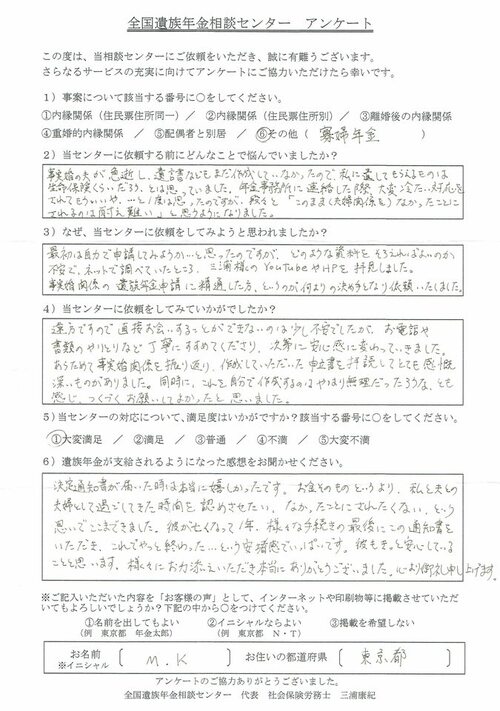 全国遺族年金相談センター　アンケート
この度は、当相談センターにご依頼をいただき、誠に有難うございます。
さらなるサービスの充実に向けてアンケートにご協力いただけたら幸いです。
1）事案について該当する番号に○をしてください。
①内縁関係（住民票住所同一）　／　②内縁関係（住民票住所別）／　③離婚後の内縁関係
④重婚的内縁関係　／　⑤配偶者と別居　／　⑥その他（　寡婦年金　　）
2）当センターに依頼する前にどんなことで悩んでいましたか？
事実婚の夫が急逝し、遺言書などもまだ作成していなかったので、私に遺してもらえるものは
生命保険くらいだろう、とは思っていました。年金事務所に連絡した際、大変冷たい対応を
されてもういいや…と1度は思ったのですが、段々と「このまま（夫婦関係を）なかったことに
されるのは耐え難い」と思うようになりました。
3）なぜ、当センターに依頼をしてみようと思われましたか？
最初は自力で申請してみようか…と思ったのですが、どのような資料をそろえればよいのか
不安で、ネットで調べていたところ、三浦様のYouTubeやHPを拝見しました。
事実婚関係の遺族年金申請に精通した方、というのが何よりの決め手となり依頼いたしました。
4）当センターに依頼をしてみていかがでしたか？
遠方ですので直接お会いすることができないのは少し不安でしたが、お電話や
書類のやりとりなど丁寧にすすめてくださり、次第に安心感に変わっていきました。
あらためて事実婚関係を振り返り、作成していただいた申立書を拝読してとても感慨
深いものがありました。同時に、これを自分で作成するのはやはり無理だったろうな、とも
感じ、つくづくお願いしてよかったと思いました。
5）当センターの対応について、満足度はいかがですか？該当する番号に○をしてください。
①大変満足　／　②満足　／　③普通　／　④不満　／　⑤大変不満
6）遺族年金が支給されるようになった感想をお聞かせください。
決定通知書が届いた時は本当に嬉しかったです。お金そのものというより、私と夫との
夫婦として過ごしてきた時間を認めさせたい、なかったことにされたくない、という
思いでここまできました。彼が亡くなって1年、様々な手続きの最後にこの通知書を
いただき、これでやっと終わった…という安堵感でいっぱいです。彼もきっと安心している
ことと思います。様々にお力添えいただき本当にありがとうございました。心より御礼申し上げます。
※ご記入いただいた内容を「お客様の声」として、インターネットや印刷物等に掲載させていただ
いてもよろしいでしょうか？下記の中から○をつけてください。
①名前を出してもよい　　②イニシャルならよい　　③掲載を希望しない
（例　東京都　年金太郎）　（例　東京都　N・T）
お名前　〔　M.K　〕　お住いの都道府県　〔　東京都　〕
※イニシャル
アンケートのご協力ありがとうございました。
全国遺族年金相談センター　代表　社会保険労務士　三浦康紀